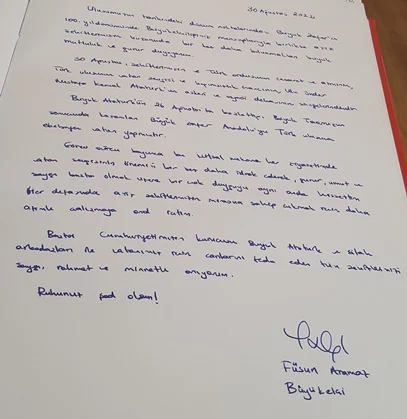 30 Ağustos, 2022
Ulusumuzun tarihindeki dönüm noktalarından, Büyük Zafer'in
100. yıldönümünde Büyükelçiliğimiz mensuplarıyla birlikte aziz
şehitlerimizin huzurunda bir kez daha bulunmaktan büyük
mutluluk ve gurur duyuyorum.
30 Ağustos, şehitlerimizin ve Türk ordusunun cesaret ve azminin,
Türk ulusunun vatan sevgisi ve bağımsızlık inancının, Ulu Önder
Mustafa Kemal Atatürk'ün askeri ve siyasi dehasının
Büyük Atatürk'ün 26 Ağustos'ta başlattığı, Büyük Taarruzun
sonucunda kazanılan Büyük Zafer Anadolu'yu Türk ulusuna
ebediyen vatan yapmıştır.
Görev sürem boyunca bu kutsal mekana her ziyaretimde
vatan sevgisinin önemini bir kez daha idrak ederek, gurur, umut ve
saygı başta olmak üzere bir çok duyguyu aynı anda hissettim
Her defasında aziz şehitlerimizin mirasına sahip çıkmak için daha
çok çalışmaya and içtim.
Başta Cumhuriyetimizin kurucusu Büyük Atatürk ve silah
arkadaşları ile vatanımız için canlarını feda eden tüm şehitlerimizi
saygı, rahmet ve minnetle anıyorum.
Ruhunuz şad olsun!
Füsun Aramaz
Büyükelçi